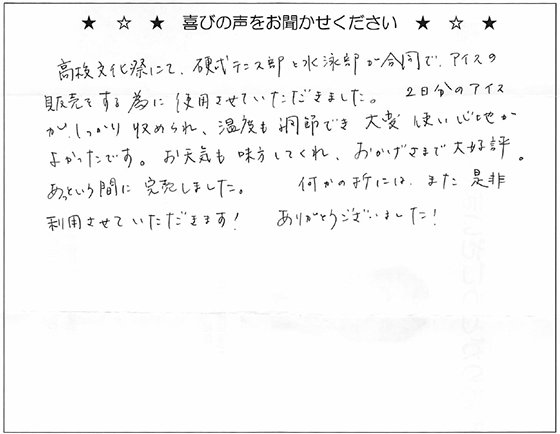 ★ ☆ ★ 喜びの声をお聞かせください ★ ☆ ★
高校文化祭にて、硬式テニス部と水泳部が合同で、アイスの
販売をする為に使用させていただきました。 2日分のアイス
が、しっかり収められ、温度も調節でき 大変 使い心地が
よかったです。 お天気も味方してくれ、おかげさまで大好評。
あっという間に完売しました。 何かの折には、また是非
利用させていただきます! ありがとうございました!